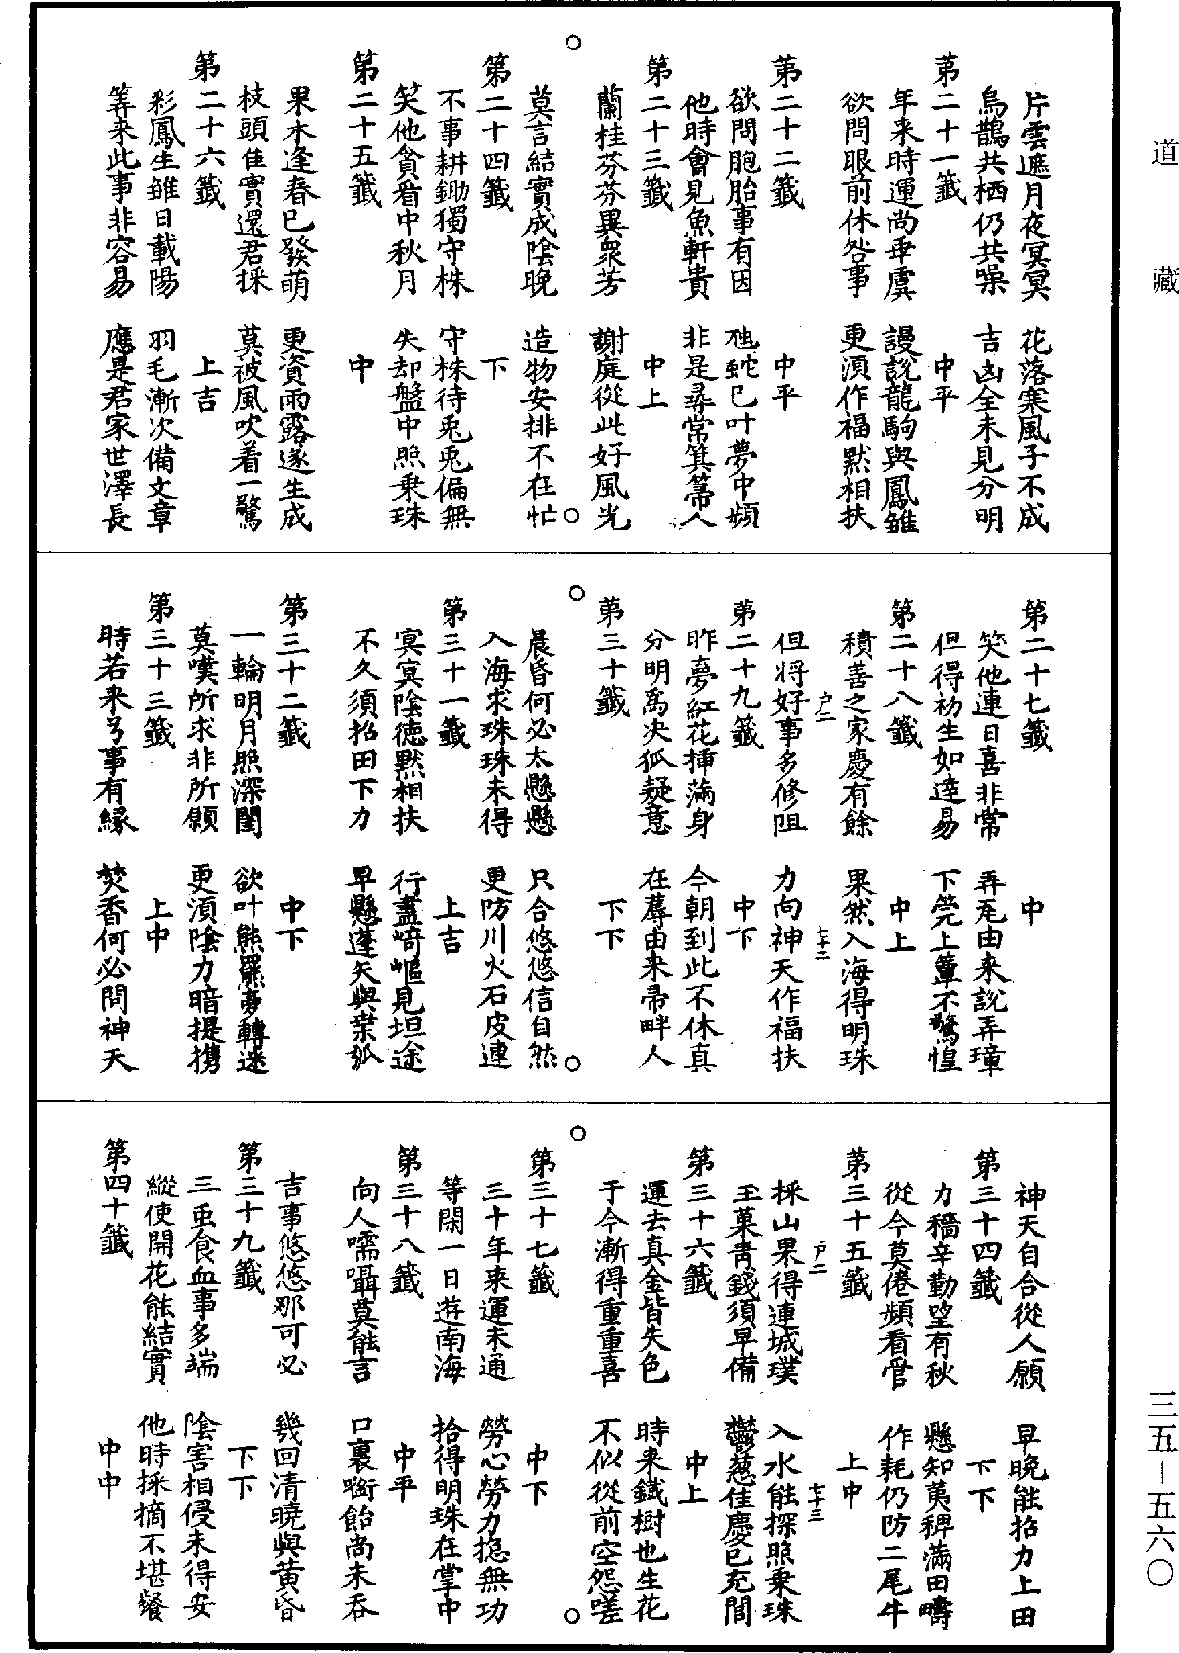 道藏
片雲遮月夜冥冥　花落寒風子不成
烏鵲共栖仍共噪　吉凶全未見分明
第二十一籤　中平
年來時運尚乖虞　謾說龍駒與鳳雛
欲問眼前休咎事　更湏作福黙相扶
第二十二籤　中平
欲問胞胎事有因　虺蛇已叶夢中頻
他時會見魚軒貴　非是尋常箕箒人
第二十三籤　中上
蘭桂芬芬異衆芳　謝庭從此好風光
莫言結實成陰晚　造物安排不在忙
第二十四籤　下
不事耕鋤獨守株　守株待兎兎偏無
笑他貪看中秋月　失却盤中照乗珠
第二十五籤　中
果木逢春已發萌　更資雨露遂生成
枝頭佳實還君採　莫被風吹着一驚
第二十六籤　上吉
彩鳳生雛日載陽　羽毛漸次備文章
筭来此事非容易　應是君家世澤長
第二十七籤　中
笑他連日喜非常　弄瓦由来說弄璋
但得初生如達易　下筦上簟不驚惶
第二十八籤　中上
積善之家慶有餘　果然入海得明珠
但將好事多修阻　力向神天作福扶
第二十九籤　中下
昨夢紅花挿滿身　今朝到此不休真
分明為决狐疑意　在蓐由来帚畔人
第三十籤　下下
晨昏何必太懸懸　只合悠悠信自然
入海求珠珠未得　更防川火石皮連
第三十一籤　上吉
冥冥陰德黙相扶　行盡崎嶇見坦途
不久須招田下力　早懸蓬矢與桒弧
第三十二籤　中下
一輪明月照深閨　欲叶熊羆夢轉迷
莫嘆所求非所願　更湏陰力暗提携
第三十三籤　上中
時若来兮事有緣　焚香何必問神天
神天自合從人願　早晚能招力上田
第三十四籤　下下
力穡辛勤望有秋　懸知荑稗滿田疇
從今莫倦頻看管　作耗仍防二尾牛
第三十五籤　上中
採山果得連城璞　入水能探照乗珠
玉菓青錢須早備　鬱葱佳慶已充閭
第三十六籤　中上
運去真金皆失色　時来鐵樹也生花
于今漸得重重喜　不似從前空怨嗟
第三十七籤　中下
三十年來運未通　勞心勞力揔無功
等閑一日遊南海　拾得明珠在掌中
第三十八籤　中平
向人嚅囁莫能言　口裏啣飴尚未吞
吉事悠悠那可必　幾回清曉與黃昏
第三十九籤　下下
三䖝食血事多端　陰害相侵未得安
縱使開花能結實　他時採摘不堪餐
第四十籤　中中
三五－五六〇